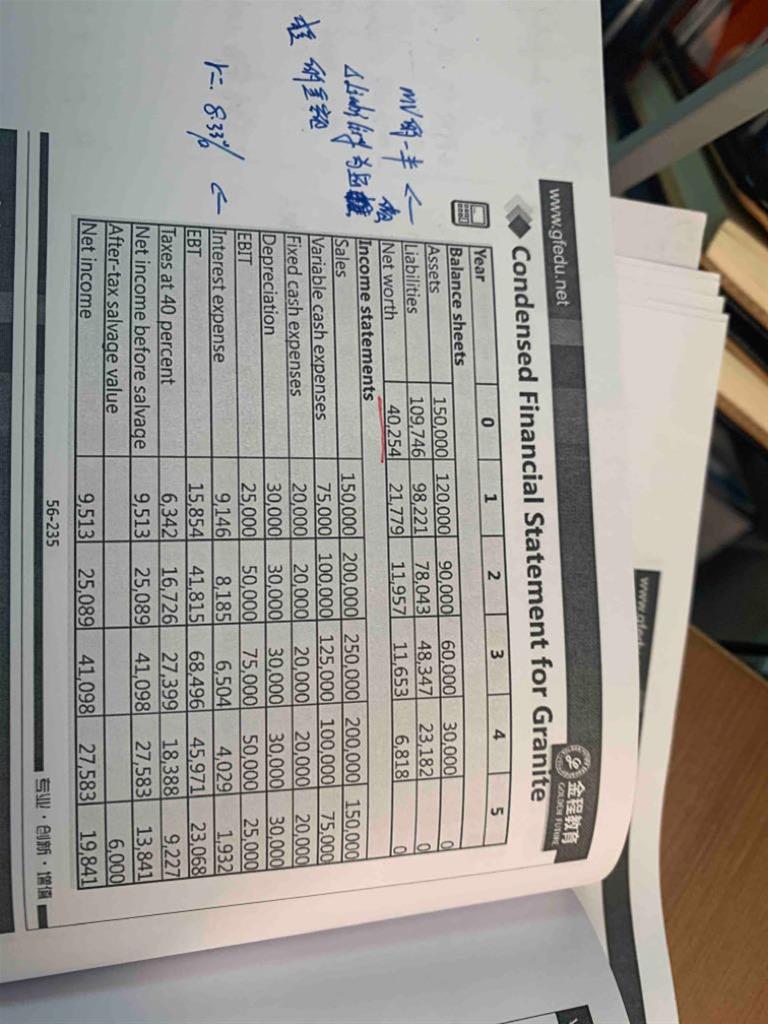 www.gfedu.net
金程教育
GOLDEN FUTURE
Condensed Financial Statement for Granite
Year 0 1 2 3 4 5
Balance sheets
Assets 150,000 120,000 90,000 60,000 30,000 0
Liabilities 109,746 98,221 78,043 48,347 23,182 0
Net worth 40,254 21,779 11,957 11,653 6,818 0
Income statements
Sales 150,000 200,000 250,000 200,000 150,000
Variable cash expenses 75,000 100,000 125,000 100,000 75,000
Fixed cash expenses 20,000 20,000 20,000 20,000 20,000
Depreciation 30,000 30,000 30,000 30,000 30,000
EBIT 25,000 50,000 75,000 50,000 25,000
Interest expense 9,146 8,185 6,504 4,029 1,932
EBT 15,854 41,815 68,496 45,971 23,068
Taxes at 40 percent 6,342 16,726 27,399 18,388 9,227
Net income before salvage 9,513 25,089 41,098 27,583 13,841
After-tax salvage value 6,000
Net income 9,513 25,089 41,098 27,583 19,841
MV的一半 ←
r= 8.33% ←
56-235
专业·创新·增值